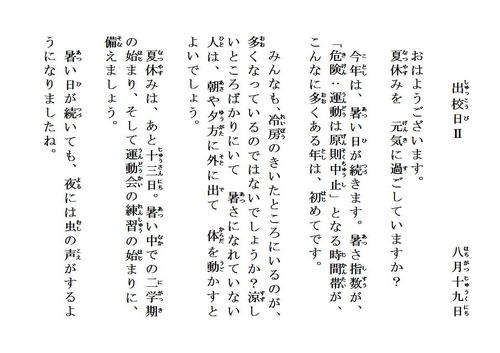 出校日Ⅱ　八月十九日
おはようございます。
夏休みを　元気に過ごしていますか？
今年は、暑い日が続きます。暑さ指数が、
「危険：運動は原則中止」となる時間帯が、
こんなに多くある年は、初めてです。
みんなも、冷房のきいたところにいるのが、
多くなっているのではないでしょうか？涼し
いところばかりにいて　暑さになれていない
人は、朝や夕方に外に出て　体を動かすと
よいでしょう。
夏休みは、あと十三日。暑い中での二学期
の始まり、そして運動会の練習の始まりに、
備えましょう。
暑い日が続いても、夜には虫の声がするよ
うになりましたね。